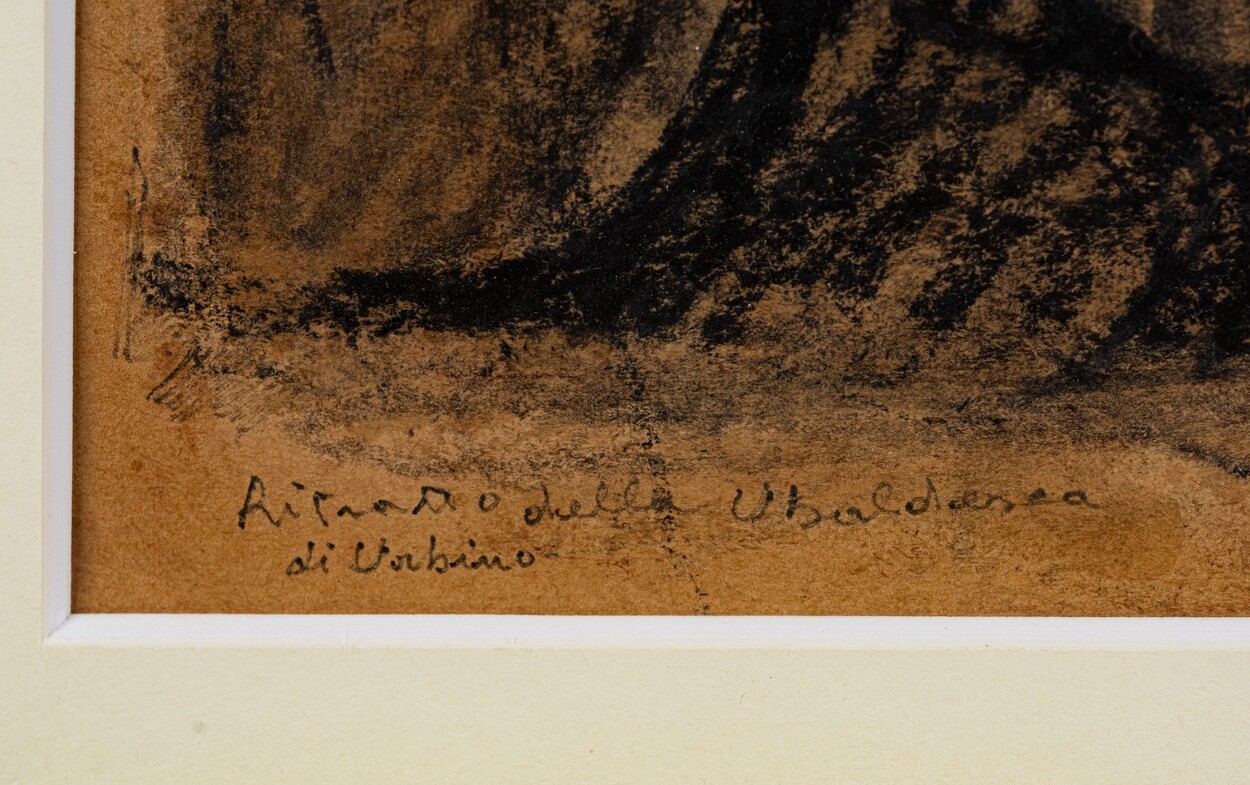 Ritratto della Ubaldesca
di Urbino